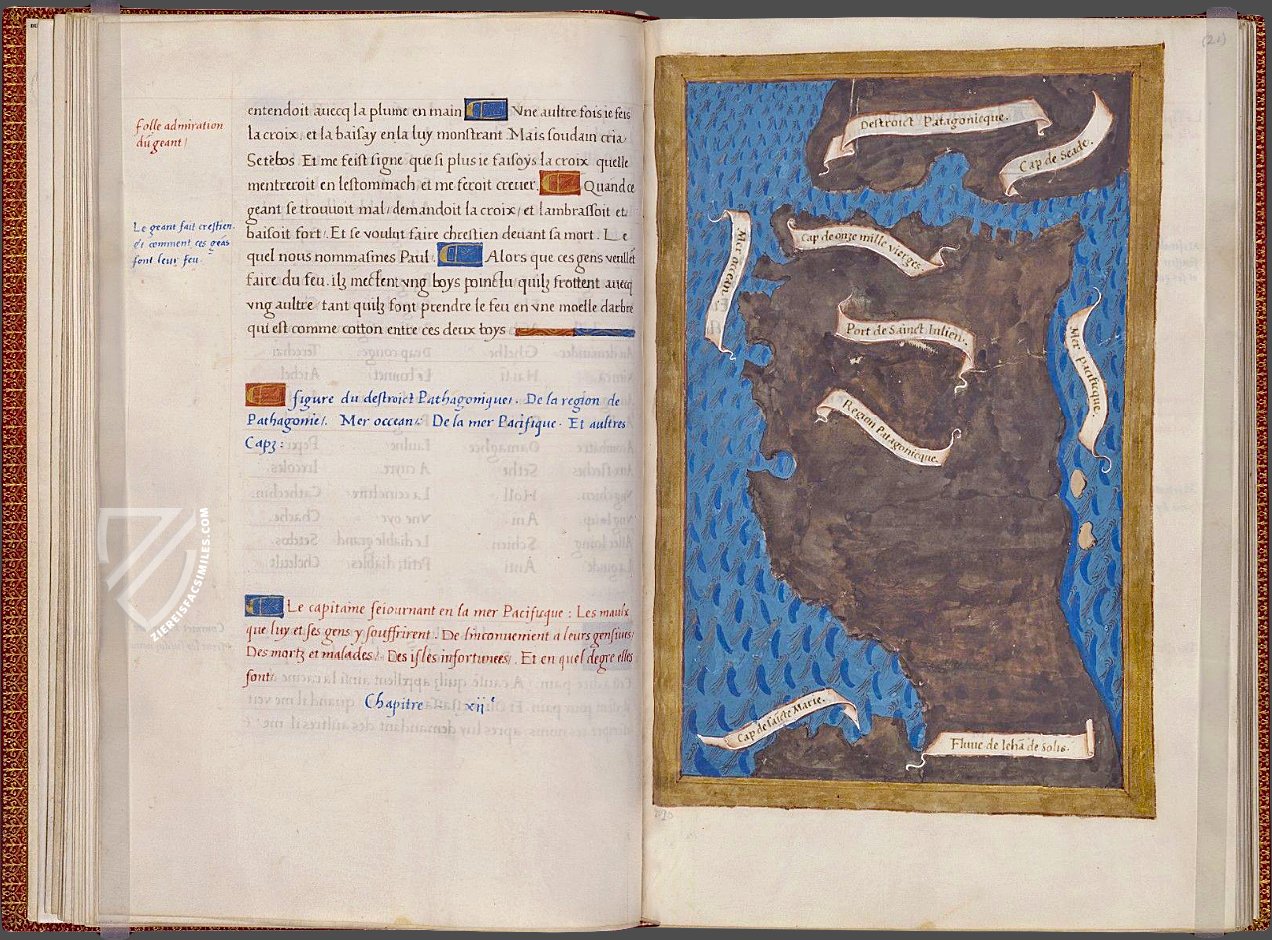 folle admiration
du geant/
Le geant fait crestien.
et comment ces geās
font leur feu.
entendoit auecq la plume en main Vne aultre fois ie feis
la croix, et la baisay en la luy monstrant. Mais soudain cria
Setebos. Et me feist signe que si plus ie faisoys la croix quelle
mentreroit en lestommach et me feroit creuer. Quand ce
geant se trouuoit mal/demandoit la croix/et lambrassoit et
baisoit fort/. Et se voulut faire chrestien deuant sa mort. Le
quel nous nommasmes Paul. Alors que ces gens veullēt
faire du feu. ilz mectent vng boys poinctu quilz frottent auecq
vng aultre tant quilz font prendre le feu en vne moelle darbre
qui est comme cotton entre ces deux boys
figure du destroict Pathagonique. De la region de
Pathagonie/. Mer occean. De la mer Pacifique. Et aultres
Capz:
Le capitaine seiournant en la mer Pacificque: Les maulx
que luy et ses gens y souffrirent. De linconuenient a leurs gensiues
Des mortz et malades. Des isles infortunees. Et en quel degre elles
sont.
Chapitre xii
(21)
Destroict Patagonicque.
Cap de Seade.
Cap de onze mille vierges.
Mer occean. Et
Port de Sainct Iulien.
Mer pacificque.
Region Patagonicque.
Cap de saīcte Marie.
Fluue de Iehā de Solis.
ZIEREISFACSIMILES.COM